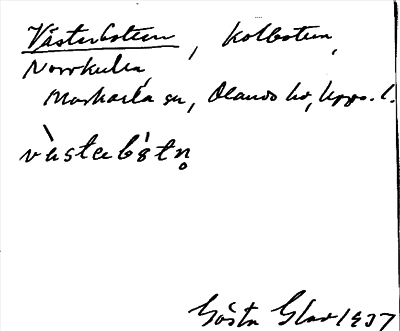 Västerbotten, Kolbotten,
Norrkulla,
Morkarla sn, Olands hd, Upps. l.
vàstebòtn̥
Gösta Glav 1937